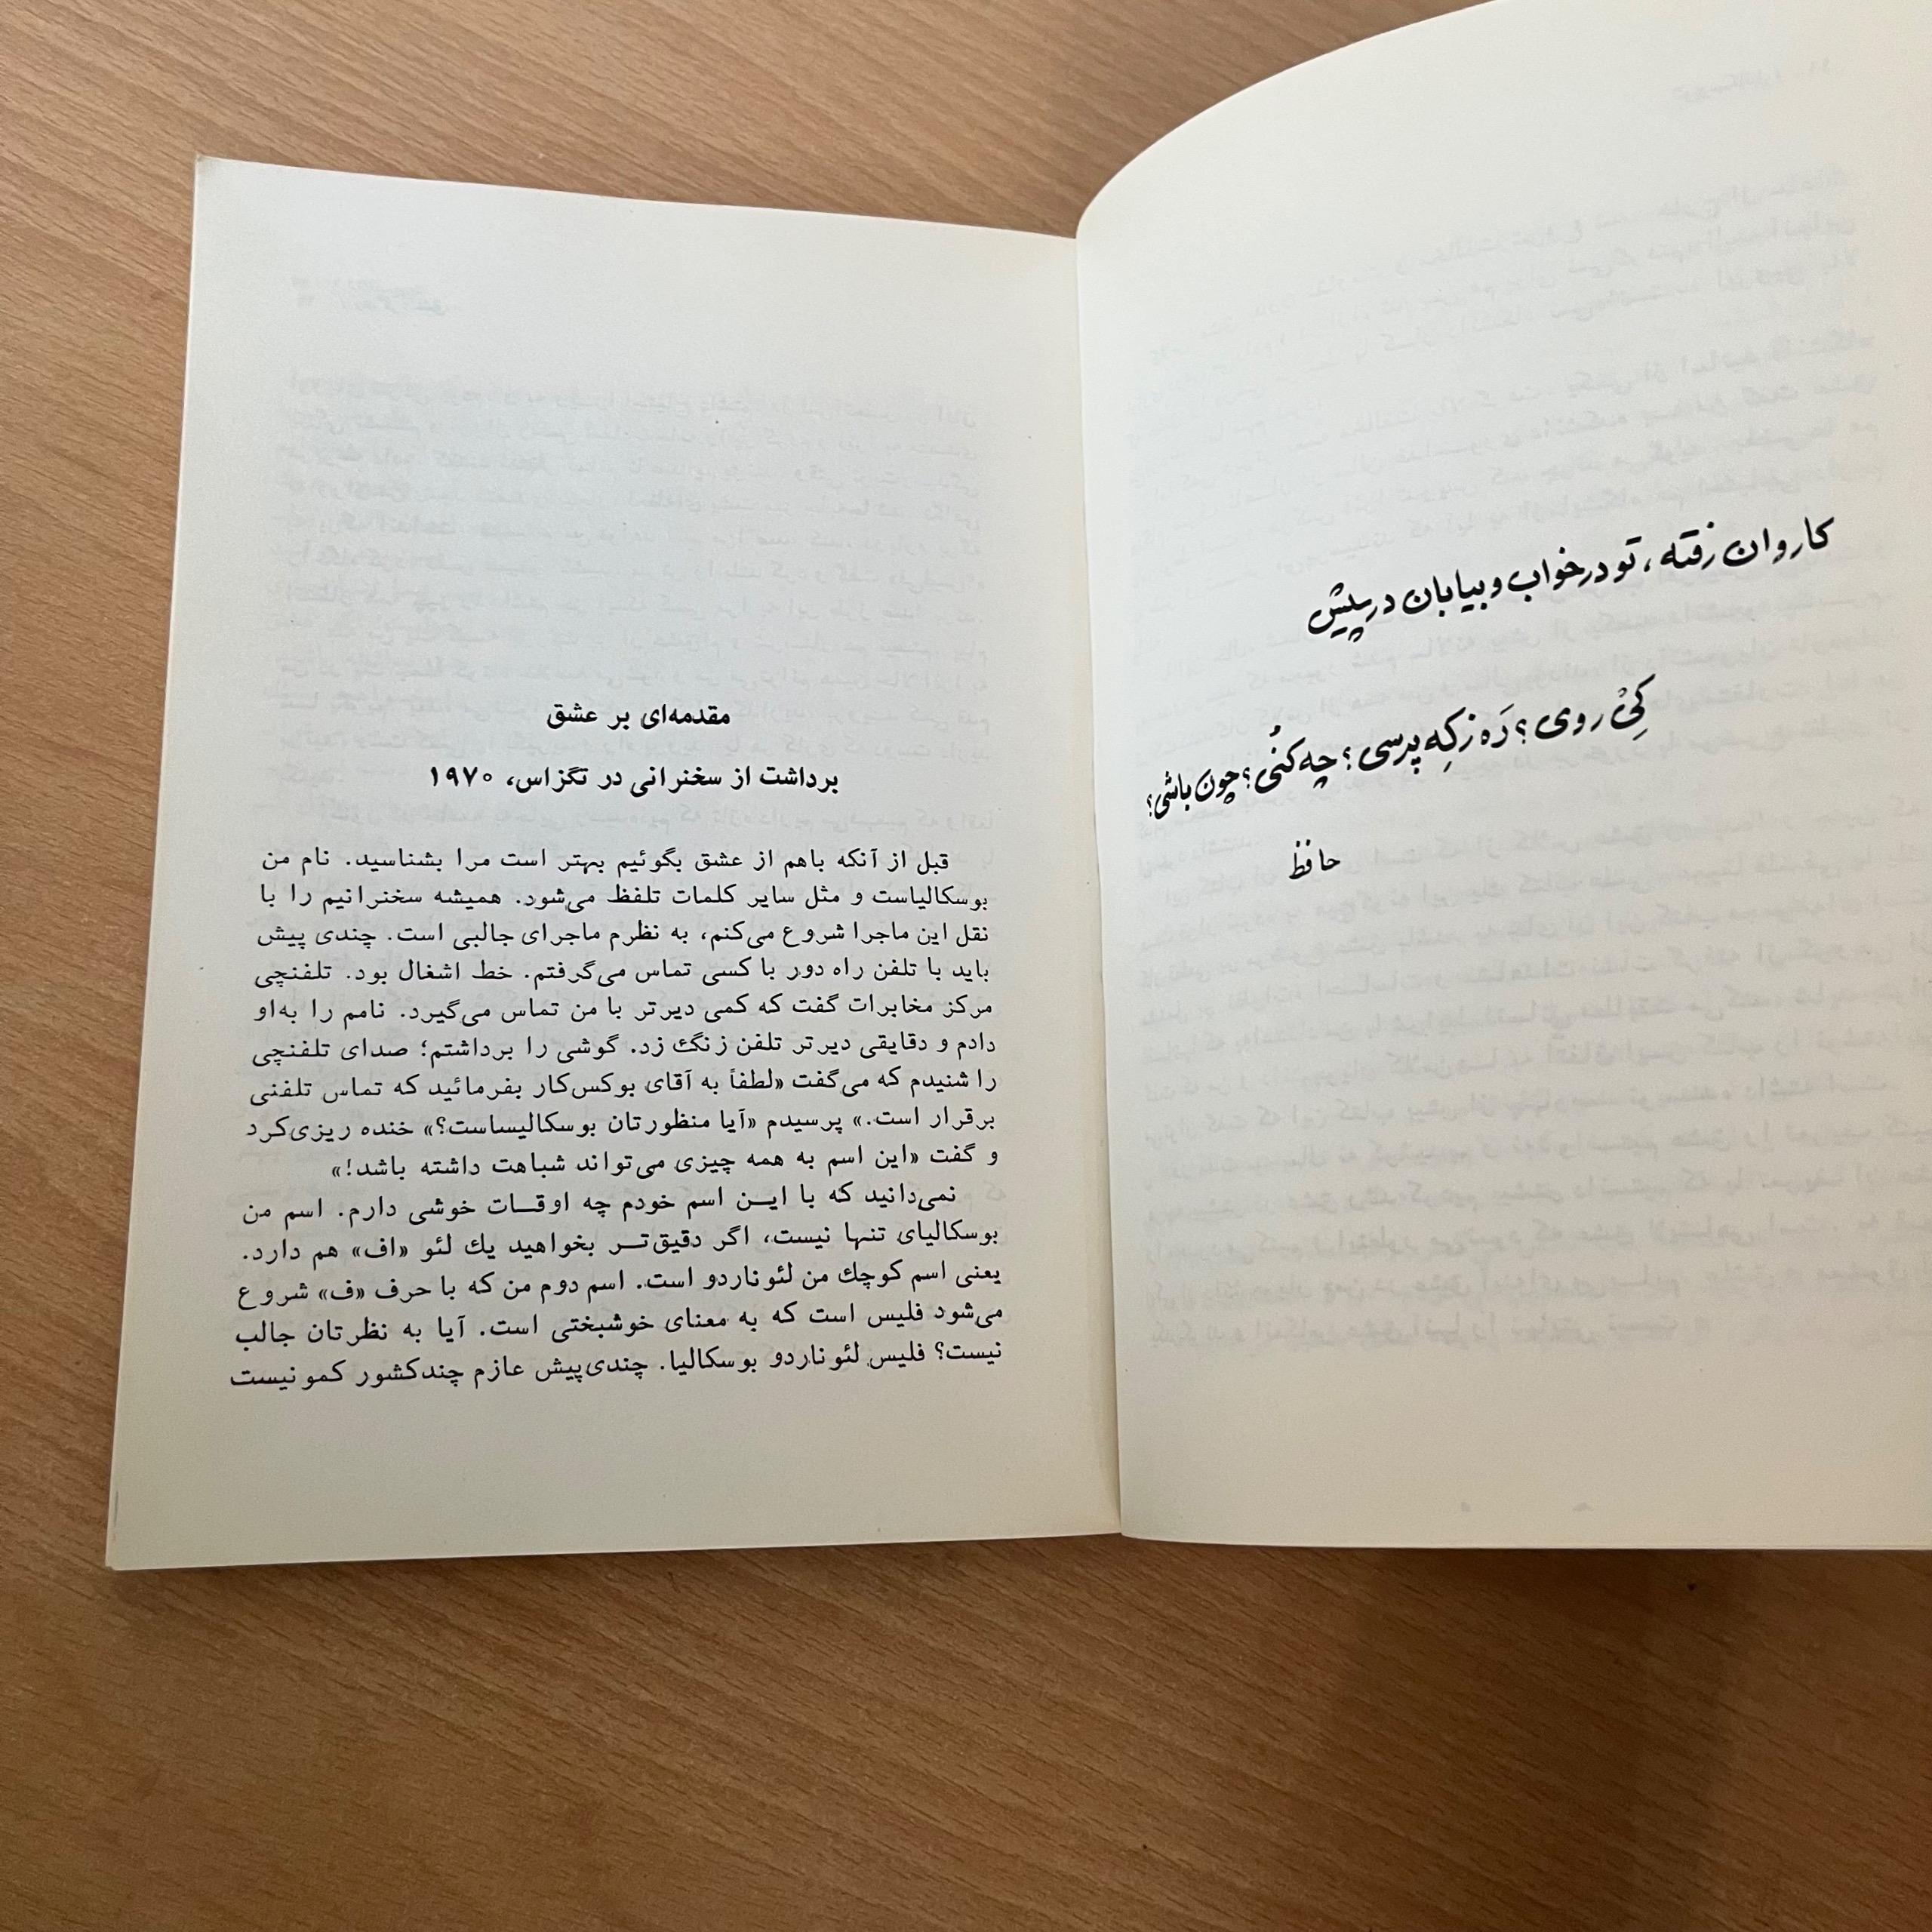 کاروان رفته، تو در خواب و بیابان در پیش
کِیْ روی؟ رَه ز کِه پرسی؟ چه کنُی؟ چون باشی؟
حافظ
مقدمه‌ای بر عشق
برداشت از سخنرانی در تگزاس، ۱۹۷۰
قبل از آنکه باهم از عشق بگوئیم بهتر است مرا بشناسید. نام من
بوسکالیاست و مثل سایر کلمات تلفظ می‌شود. همیشه سخنرانیم را با
نقل این ماجرا شروع می‌کنم، به نظرم ماجرای جالبی است. چندی پیش
باید با تلفن راه دور با کسی تماس می‌گرفتم. خط اشغال بود. تلفنچی
مرکز مخابرات گفت که کمی دیرتر با من تماس می‌گیرد. نامم را به‌او
دادم و دقایقی دیرتر تلفن زنگ زد. گوشی را برداشتم؛ صدای تلفنچی
را شنیدم که می‌گفت «لطفاً به آقای بوکس‌کار بفرمائید که تماس تلفنی
برقرار است.» پرسیدم «آیا منظورتان بوسکالیساست؟» خنده ریزی‌کرد
و گفت «این اسم به همه چیزی می‌تواند شباهت داشته باشد!»
نمی‌دانید که با ایـن اسم خودم چه اوقـات خوشی دارم. اسم من
بوسکالیای تنها نیست، اگر دقیق‌تـر بخواهید یك لئو «اف» هم دارد.
یعنی اسم کوچك من لئوناردو است. اسم دوم من که با حرف «ف» شروع
می‌شود فلیس است که به معنای خوشبختی است. آیا به نظرتان جالب
نیست؟ فلیس لئوناردو بوسکالیا. چندی‌پیش عازم چندکشور کمونیست